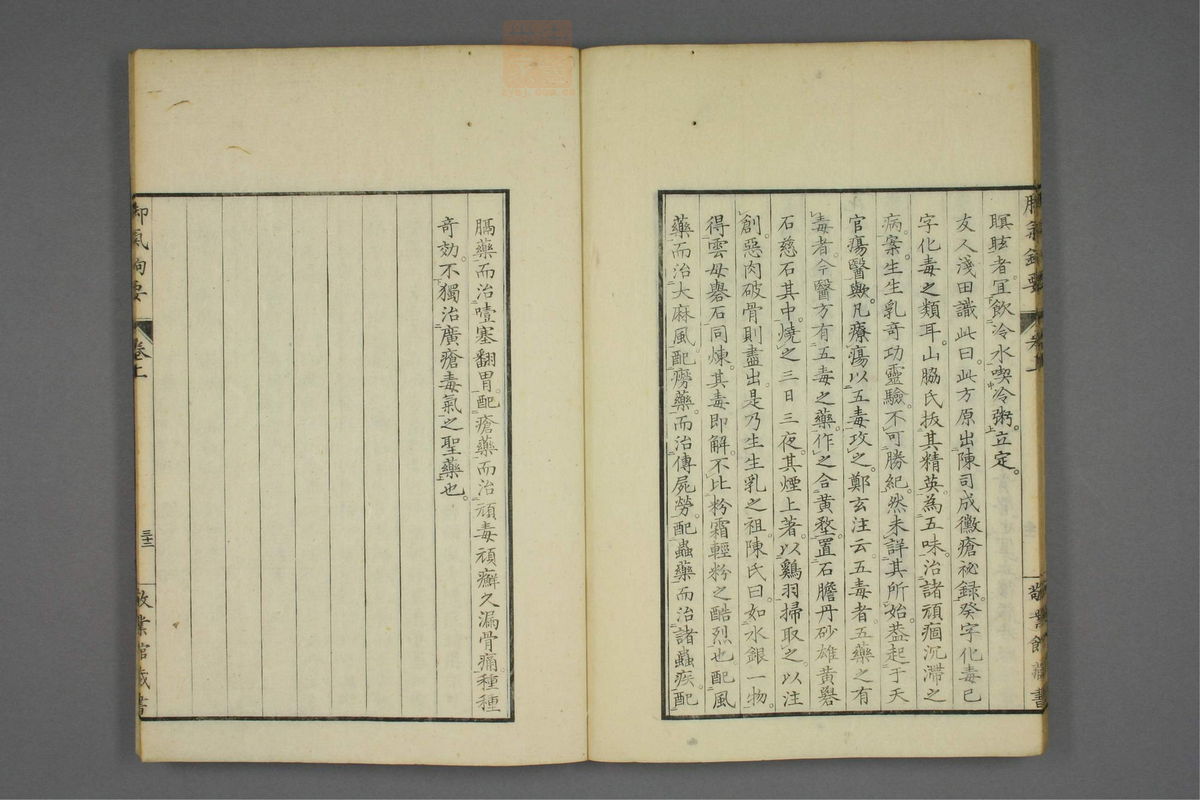 瞑眩者。宜飲冷水喫冷粥。立定。
友人淺田識此曰。此方原出陳司成黴瘡祕録。癸字化毒已
字化毒之類耳。山脇氏拔其精英。為五味。治諸頑痼沉滯之
病案。生生乳奇功靈驗。不可勝紀。然未詳其所始。葢起于天
官瘍醫歟。凡療瘍以五毒攻之。鄭玄注云。五毒者。五藥之有
毒者。今醫方有五毒之藥。作之合黃堥。置石膽丹砂雄黃礜
石慈石其中。燒之三日三夜。其煙上著。以鷄羽掃取之。以注
創。惡肉破骨則盡出。是乃生生乳之祖。陳氏曰。如水銀一物。
得雲母礜石同煉。其毒即解。不比粉霜輕粉之酷烈也。配風
藥而治大麻風。配癆藥。而治傳屍勞。配蟲藥而治諸蟲疾。配
膈藥而治噎塞翻胃。配瘡藥而治頑毒頑癬久漏骨痛。種種
奇効。不獨治廣瘡毒氣之聖藥也。
卷上
三十二